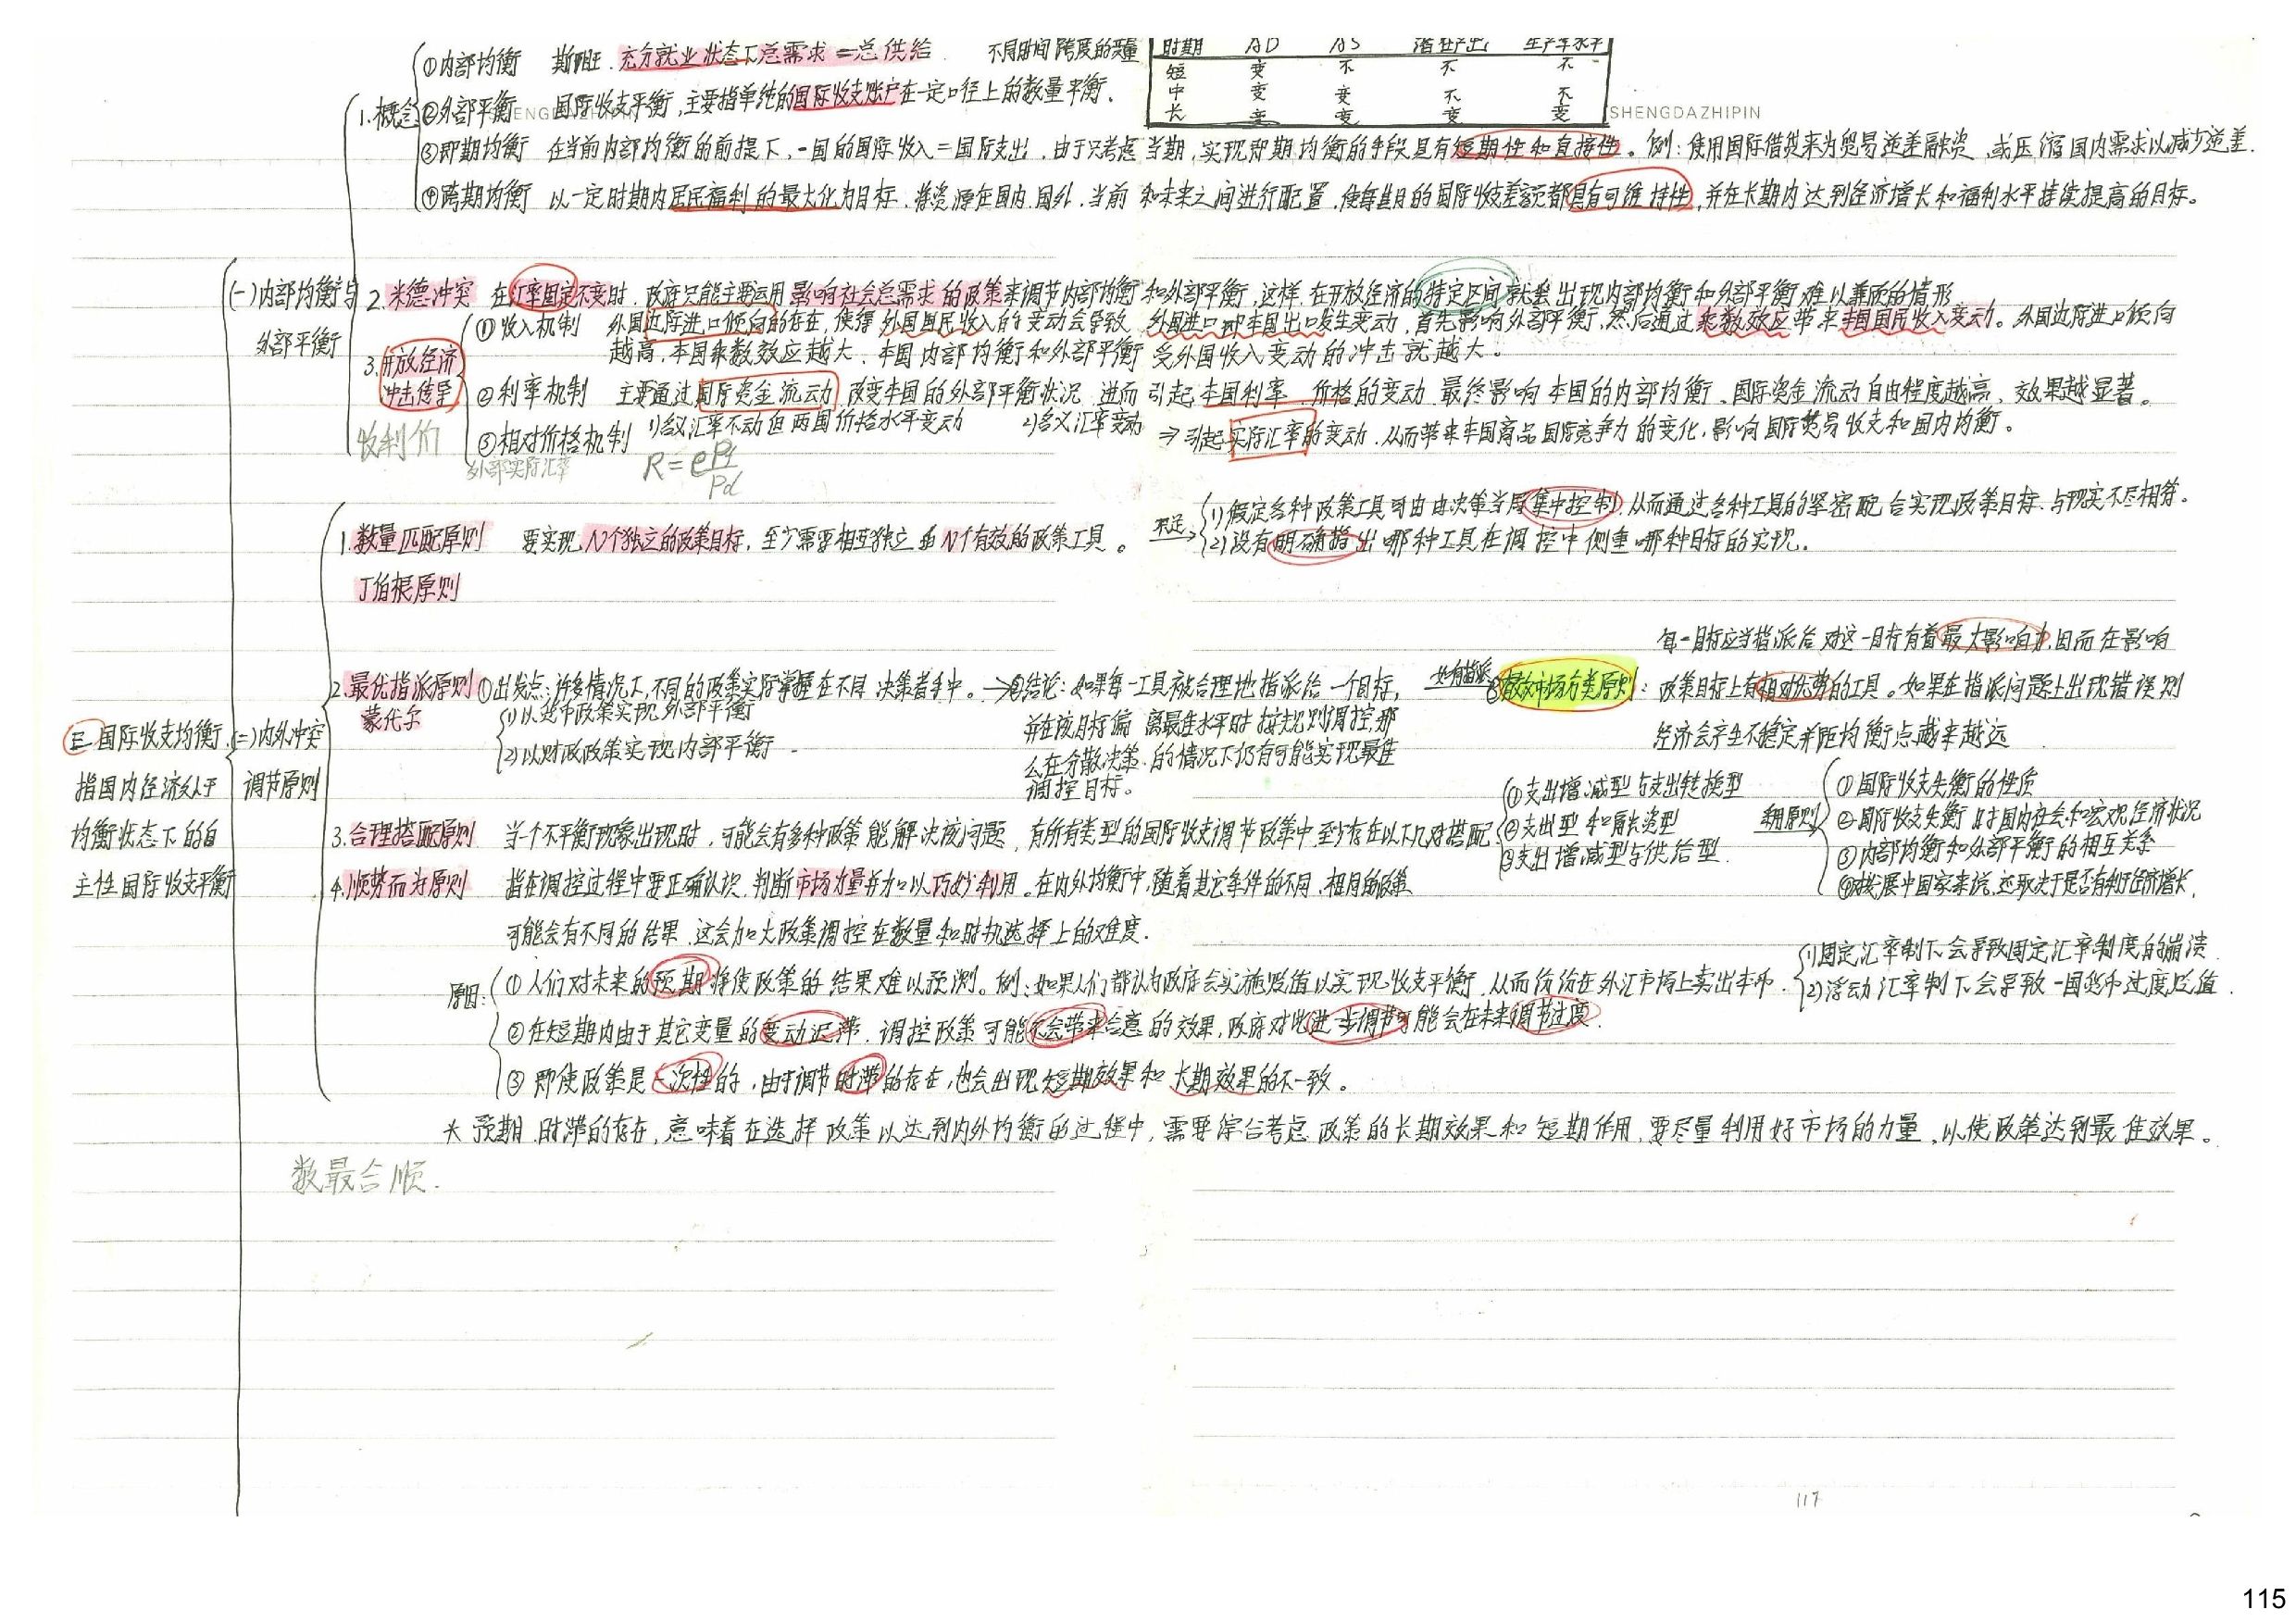 ①内部均衡 斯旺. 充分就业状态下总需求=总供给. 不同时间跨度的衡量
时期 AD AS 潜在产出 生产率水平
短 变 不 不 不
中 变 变 不 不
长 变 变 变 变
1.概念 ②外部平衡 国际收支平衡,主要指单纯的国际收支账户在一定口径上的数量平衡.
SHENGDAZHIPIN
③即期均衡 在当前内部均衡的前提下,一国的国际收入=国际支出.由于只考虑当期,实现即期均衡的手段具有短期性和直接性。例:使用国际借贷来为贸易逆差融资,或压缩国内需求以减少逆差.
④跨期均衡 以一定时期内居民福利的最大化为目标.将资源在国内.国外.当前和未来之间进行配置,使每一期的国际收支差额都具有可维持性,并在长期内达到经济增长和福利水平持续提高的目标。
(一)内部均衡与
外部平衡
2.米德冲突 在汇率固定不变时.政府只能主要运用影响社会总需求的政策来调节内部均衡和外部平衡,这样.在开放经济的特定区间就会出现内部均衡和外部平衡难以兼顾的情形
3.开放经济
冲击传导
①收入机制 外国边际进口倾向的存在,使得外国国民收入的变动会导致外国进口即本国出口发生变动,首先影响外部平衡,然后通过乘数效应带来本国国民收入变动。外国边际进口倾向
越高,本国乘数效应越大.本国内部均衡和外部平衡受外国收入变动的冲击就越大。
②利率机制 主要通过国际资金流动改变本国的外部平衡状况.进而引起本国利率.价格的变动.最终影响本国的内部均衡.国际资金流动自由程度越高,效果越显著。
收利价
③相对价格机制 1)名义汇率不动但两国价格水平变动 2)名义汇率变动 ⇒引起实际汇率的变动.从而带来本国商品国际竞争力的变化,影响国际贸易收支和国内均衡。
外部实际汇率 R=ePf/Pd
1.数量匹配原则 要实现N个独立的政策目标,至少需要相互独立的N个有效的政策工具。
丁伯根原则
不足 (1)假定各种政策工具可由决策当局集中控制,从而通过各种工具的紧密配合实现政策目标.与现实不尽相符。
(2)没有明确指出哪种工具在调控中侧重哪种目标的实现.
2.最优指派原则 ①出发点:许多情况下,不同的政策实际掌握在不同决策者手中。→②结论:如果每一工具被合理地指派给一个目标,
蒙代尔
(1)以货币政策实现外部平衡
(2)以财政政策实现内部平衡
并在该目标偏离最佳水平时按规则调控,那
么在分散决策的情况下仍有可能实现最佳
调控目标。
如何指派 ③有效市场分类原则:
每一目标应当指派给对这一目标有着最大影响力,因而在影响
政策目标上有相对优势的工具。如果在指派问题上出现错误则
经济会产生不稳定并距均衡点越来越远
三 国际收支均衡
指国内经济处于
均衡状态下的自
主性国际收支平衡
(二)内外冲突
调节原则
3.合理搭配原则 当一个不平衡现象出现时,可能会有多种政策能解决该问题,有所有类型的国际收支调节政策中至少存在以下几对搭配
①支出增减型与支出转换型
②支出型和融资型
③支出增减型与供给型.
①国际收支失衡的性质
②国际收支失衡时国内社会和宏观经济状况
③内部均衡和外部平衡的相互关系
④对发展中国家来说,还取决于是否有利于经济增长.
4.顺势而为原则 指在调控过程中要正确认识.判断市场力量并加以巧妙利用。在内外均衡中,随着其它条件的不同,相同的政策
可能会有不同的结果.这会加大政策调控在数量和时机选择上的难度.
原因: ①人们对未来的预期将使政策的结果难以预测。例:如果人们都认为政府会实施贬值以实现收支平衡.从而纷纷在外汇市场上卖出本币.
(1)固定汇率制下会导致固定汇率制度的崩溃.
(2)浮动汇率制下会导致一国货币过度贬值.
②在短期内由于其它变量的变动迟滞.调控政策可能不会带来合意的效果,政府对此进一步调节可能会在未来调节过度.
③即使政策是一次性的,由于调节时滞的存在,也会出现短期效果和长期效果的不一致。
*预期.时滞的存在,意味着在选择政策以达到内外均衡的过程中,需要综合考虑政策的长期效果和短期作用,要尽量利用好市场的力量,以使政策达到最佳效果。
数最合顺.
117
115